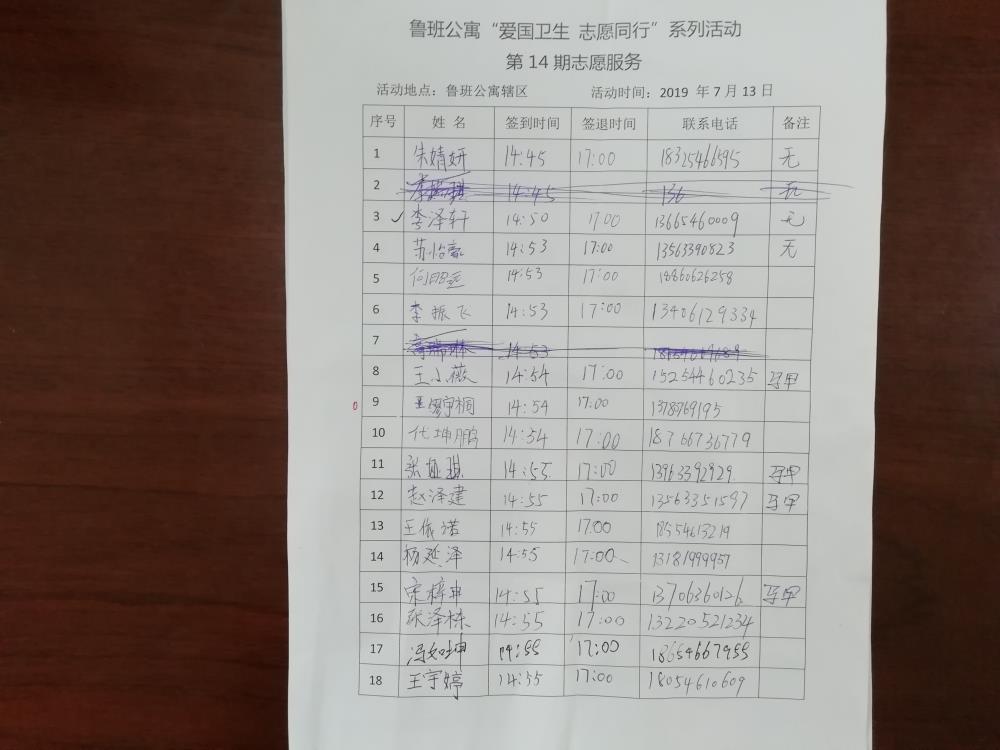 鲁班公寓“爱国卫生 志愿同行”系列活动
第 14 期志愿服务
活动地点：鲁班公寓辖区 活动时间：2019 年 7 月 13 日
序号 姓 名 签到时间 签退时间 联系电话 备注
1 朱婧妍 14:45 17:00 18325466595 无
2 14:45 136 无
3 ✓ 李泽轩 14:50 17 00 13665460009 无
4 苏怡豪 14:53 17:00 13563390823 无
5 14:53 17:00 18860626258
6 李振飞 14:53 17:00 13406129334
7 14:53
8 王小薇 14:54 17:00 15254460235 马甲
9 14:54 17:00 1378769195
10 代坤鹏 14:54 17:00 18766736779
11 14:55 17:00 13963392929 马甲
12 赵泽建 14:55 17:00 13563351597 马甲
13 王依诺 14:55 17:00 18554613219
14 杨延泽 14:55 17:00 13181999957
15 宋梓申 14:55 17:00 13706360126 马甲
16 张泽栋 14:55 17:00 13220521234
17 冯如坤 14:55 17:00 18654667955
18 王宇婷 14:55 17:00 18054610609